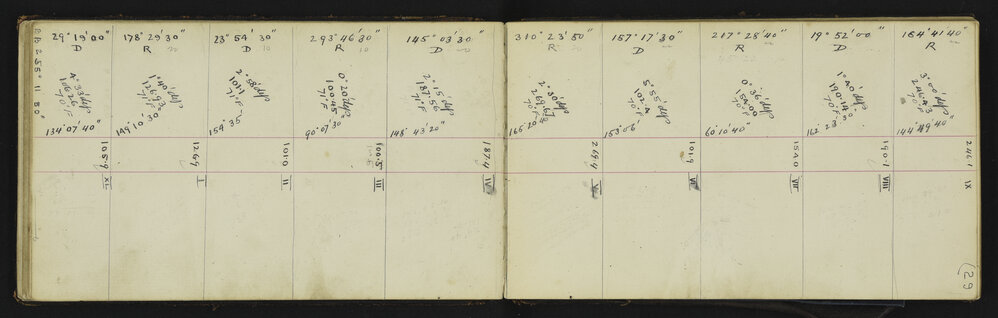 29° 19' 00"
D
4° 33' dep
106.26
70° F
134° 07' 40"
105.9
XL
178° 29' 30"
R
1° 40' dep
126.93
71° F
149 10' 30"
126.9
I
23° 54' 30"
D
2° 58' dp
101.1
71° F
154° 35'
101.0
II
293° 46' 30"
R
0° 20' dep
100.45
71° F
90° 07' 30"
100.5
III
145° 03' 30"
D
2° 15' dp
187.56
71° F
148° 43' 20"
187.4
IV
310° 23' 50"
R
2° 30' dp
269.67
70° F
165° 20' 40"
269.4
V
157° 17' 30"
D
5° 55' dp
102.4
70° F
153° 06'
101.9
VI
217° 28' 40"
R
0° 36'
154.00
70° F
60° 10' 40"
154.0
VII
19° 52' 00"
D
1° 40' dp
190.14
70° F
162° 23' 30"
190.1
VIII
164° 41' 40"
R
3° 00' dep
246.43
70° F
144° 49' 40"
246.1
IX
(29)